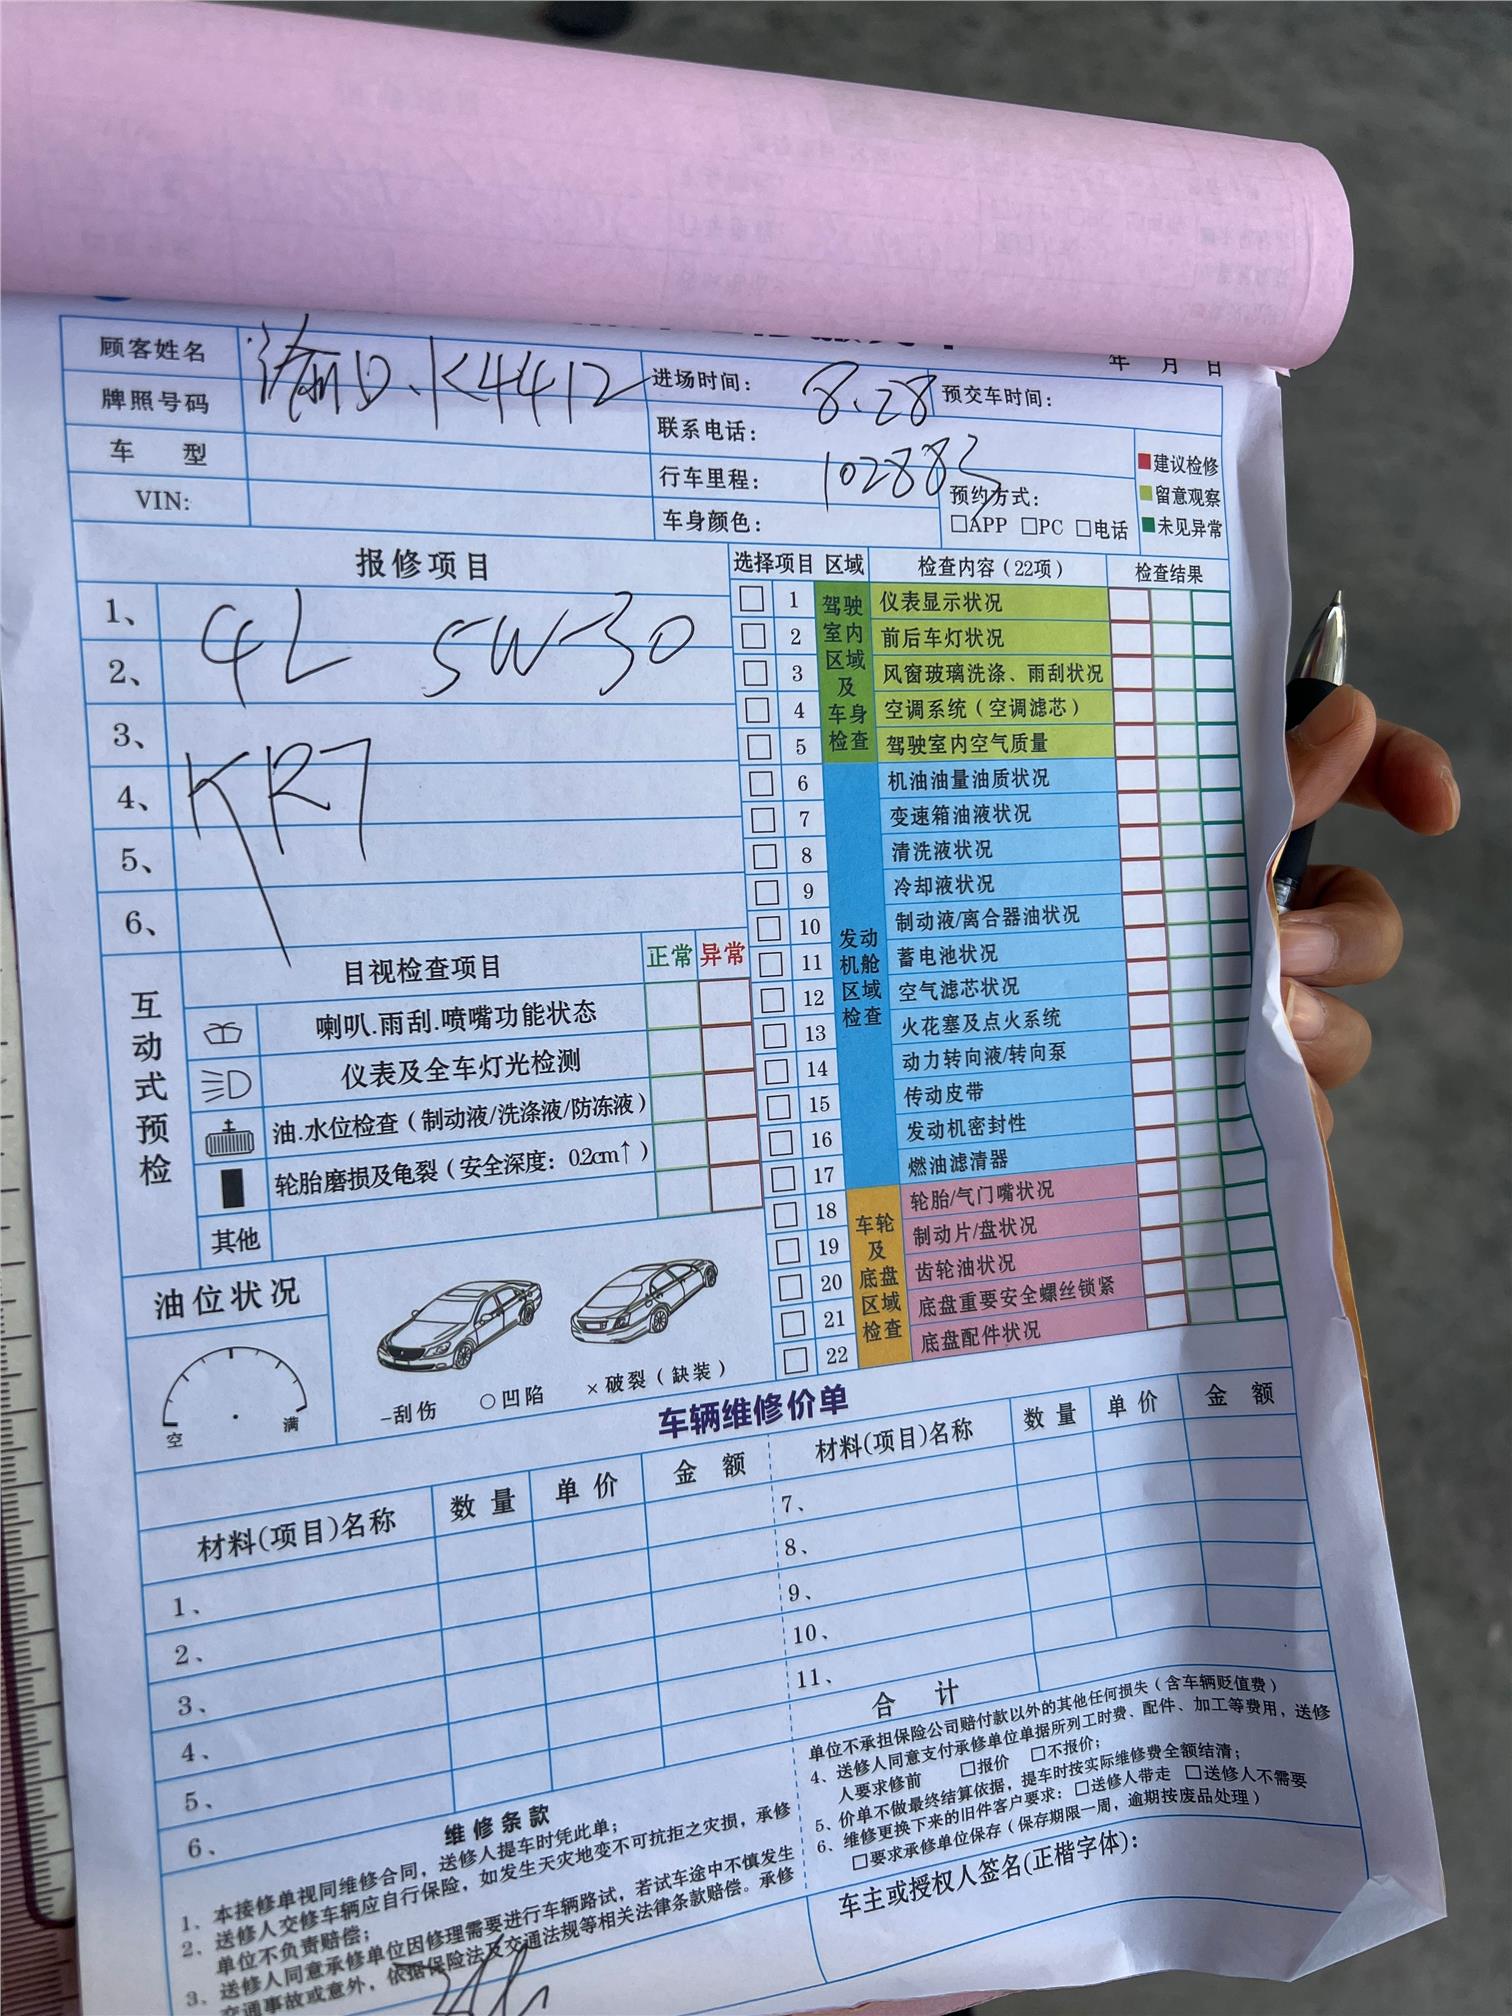 年 月 日
顾客姓名
渝D.K4412
进场时间：
8.28
预交车时间：
牌照号码
联系电话：
车 型
行车里程：
102883
预约方式：
VIN:
车身颜色：
□APP □PC □电话
建议检修
留意观察
未见异常
报修项目
1、
4L 5W-30
2、
3、
KR7
4、
5、
6、
选择项目 区域 检查内容（22项） 检查结果
驾驶室内区域及车身检查
1 仪表显示状况
2 前后车灯状况
3 风窗玻璃洗涤、雨刮状况
4 空调系统（空调滤芯）
5 驾驶室内空气质量
发动机舱区域检查
6 机油油量油质状况
7 变速箱油液状况
8 清洗液状况
9 冷却液状况
10 制动液/离合器油状况
11 蓄电池状况
12 空气滤芯状况
13 火花塞及点火系统
14 动力转向液/转向泵
15 传动皮带
16 发动机密封性
17 燃油滤清器
车轮及底盘区域检查
18 轮胎/气门嘴状况
19 制动片/盘状况
20 齿轮油状况
21 底盘重要安全螺丝锁紧
22 底盘配件状况
互动式预检
目视检查项目 正常 异常
喇叭.雨刮.喷嘴功能状态
仪表及全车灯光检测
油.水位检查（制动液/洗涤液/防冻液）
轮胎磨损及龟裂（安全深度：0.2cm↑）
其他
油位状况
空 满
-刮伤 ○凹陷 ×破裂（缺装）
车辆维修价单
材料(项目)名称 数量 单价 金额
1、
2、
3、
4、
5、
6、
材料(项目)名称 数量 单价 金额
7、
8、
9、
10、
11、
合 计
维修条款
1、本接修单视同维修合同，送修人提车时凭此单；
2、送修人交修车辆应自行保险，如发生天灾地变不可抗拒之灾损，承修
单位不负责赔偿；
3、送修人同意承修单位因修理需要进行车辆路试，若试车途中不慎发生
交通事故或意外，依据保险法及交通法规等相关法律条款赔偿。承修
单位不承担保险公司赔付款以外的其他任何损失（含车辆贬值费）
4、送修人同意支付承修单位单据所列工时费、配件、加工等费用，送修
人要求修前 □报价 □不报价；
5、价单不做最终结算依据，提车时按实际维修费全额结清；
6、维修更换下来的旧件客户要求：□送修人带走 □送修人不需要
□要求承修单位保存（保存期限一周，逾期按废品处理）
车主或授权人签名(正楷字体)：